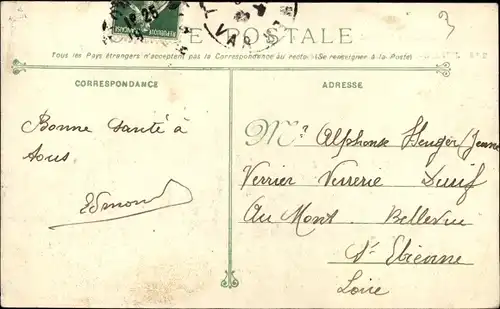 3
CARTE POSTALE
Tous les Pays étrangers n'acceptent pas la Correspondance au recto (Se renseigner à la Poste)
CORRESPONDANCE
ADRESSE
Bonne santé à
tous
Edmond
Mr Alphonse (Jeune)
Verrier Verrerie
Au Mont Bellevue
St Etienne
Loire